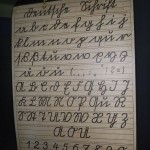 Deutsche Schrift
a b c d e f g h i j
k l m n o p q u r
s ß t u v w x y z
ä ö ü
A B C D E F G H I J
K L M N O P Q R
S T U V W X Y Z
Ä Ö Ü
1 2 3 4 5 6 7 8 9 0